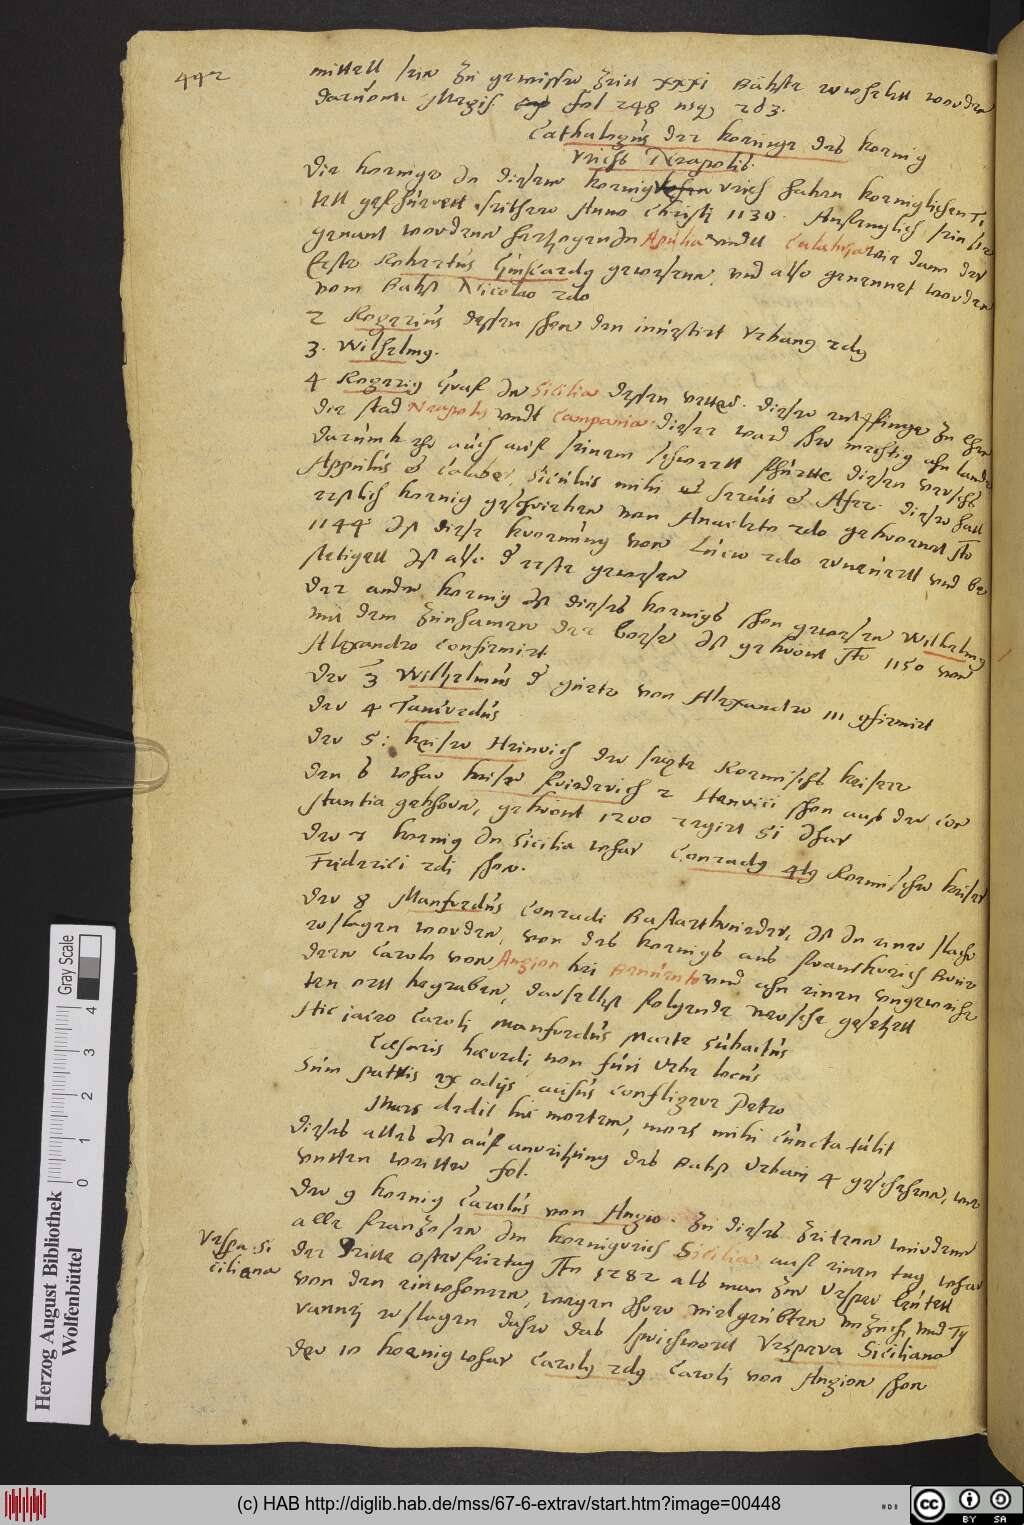 442
mittell sein zu gewisser Zeitt xxxi Bäbste erwehlett worden
darúnter
fol 248 usq 283.
Cathalogús der koenige des koenig
reichs Neapolis.
Die koenige In diesem koenig reich haben koeniglichen Ti
tell gefhúerett seithero Anno Christj 1130. Anfenglich sein sie
genant wordenn hertzogen In Apulia vndtt Calabria wie dann der
Erste Robertús Gúiscardg gewesenn, vnd also genennet worden
vom Babst Nicolao 2do
2 Rogeriús dessen shon den inúestirt Vrbang 2dg
3. Wilhelmg.
4 Rogerig Graf In Sicilia dessen vetter. dieser entpfinge zu
die stad Neapolis vndt Campania. dieser ward so mechtig ahn lande
darúmb ehr aúch aúf seinem schwertt fhúrtte diesen versch
Appulús & Calaber, Siculús mihi servit & Afer. dieser hatt
erstlich koenig geschrieben von Anacleto 2do gekroenet Ao
1144. Ist diese kroenúng von Lúcio 2do ernewertt vnd be
stetigett Ist also d erste gewesen
Der ander koenig Ist dieses koenigs shon gewesen Wilhelmg
mit dem zúnhamen der boese Ist gekröntt Ao 1150 von
Alexandro confirmirt
Der 3 Wilhelmús d gúete von Alexandro III gfirmirt
Der 4 Tancredús
Der 5: keiser Heinrich der sexte Roemischs keiser
Den 6 whar keiser friederich 2 Henrici shon auss der Con
stantia gebhorn, gekrönt 1200 regirt 51 Jhar
Der 7 koenig In Sicilia whar Conradg 4tg Roemischer keiser
Friderici 2di shon.
Der 8 Manfredús Conradi Bastartbrúder, Ist In einer slacht
erslagen worden, von des koenigs aus franckreich Brúder
dern Carolo von Angion bei Benúento vnd ahn einen vngeweihe
ten ortt begraben, darselbst folgende versche gesetzett
Hic iaceo Caroli Manfredús Marte súbactús
Cæsaris hæredi non fúit Vrbe locús
Súm patris ex odijs aúsús confligere Petro
Mars dedit hic mortem, mors mihi cúncta túlit
Dieses alles Ist aúf anreitzúng des Babst Vrbani 4 geschehenn, wie
vnten weitter fol.
Der 9 koenig Carolús von Angio. Zú dieses Zeitenn wúrdenn
alle franzosen Im koenigreich Sicilia aúf einen tag whar
der dritte osterfeirtag Ao 1282 als man zur Vesper leútett
von den einwhonern, wegen Ihrer vielgeúbten vnzúcht vnd Ty
ranneÿ erslagen daher das sprichwortt Vespera Siciliana
Vespe: Si
ciliana
Der 10 koenig whar Carolg 2dg Caroli von Angion shon
Gray Scale
0 1 2 3 4
Herzog August Bibliothek
Wolfenbüttel
(c) HAB http://diglib.hab.de/mss/67-6-extrav/start.htm?image=00448
cc BY SA